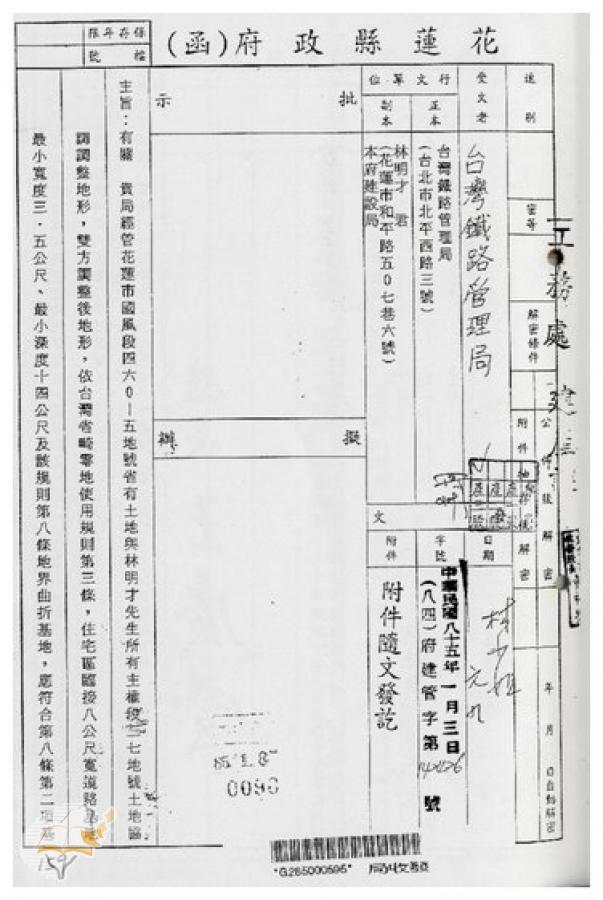 花蓮縣政府(函)
保存年限
檔號
速別
密等
解密條件
公佈後解密
附件抽存後解密
年 月 日自動解密
受文者
台灣鐵路管理局
行文單位
正本
台灣鐵路管理局
(台北市北平西路三號)
副本
林明才 君
(花蓮市和平路五0七巷六號)
本府建設局
發文
日期
中華民國八十五年一月三日
字號
(八四)府建管字第
號
附件
附件隨文發訖
批示
擬辦
85.1.8
0090
主旨:有關 貴局經管花蓮市國風段四六0—五地號省有土地與林明才先生所有主權段 七地號土地協
調調整地形,雙方調整後地形,依台灣省畸零地使用規則第三條,住宅區臨接八公尺寬道路
最小寬度三.五公尺、最小深度十四公尺及該規則第八條地界曲折基地,應符合第八條第二項
工務處
159
*G285000595*
局收發